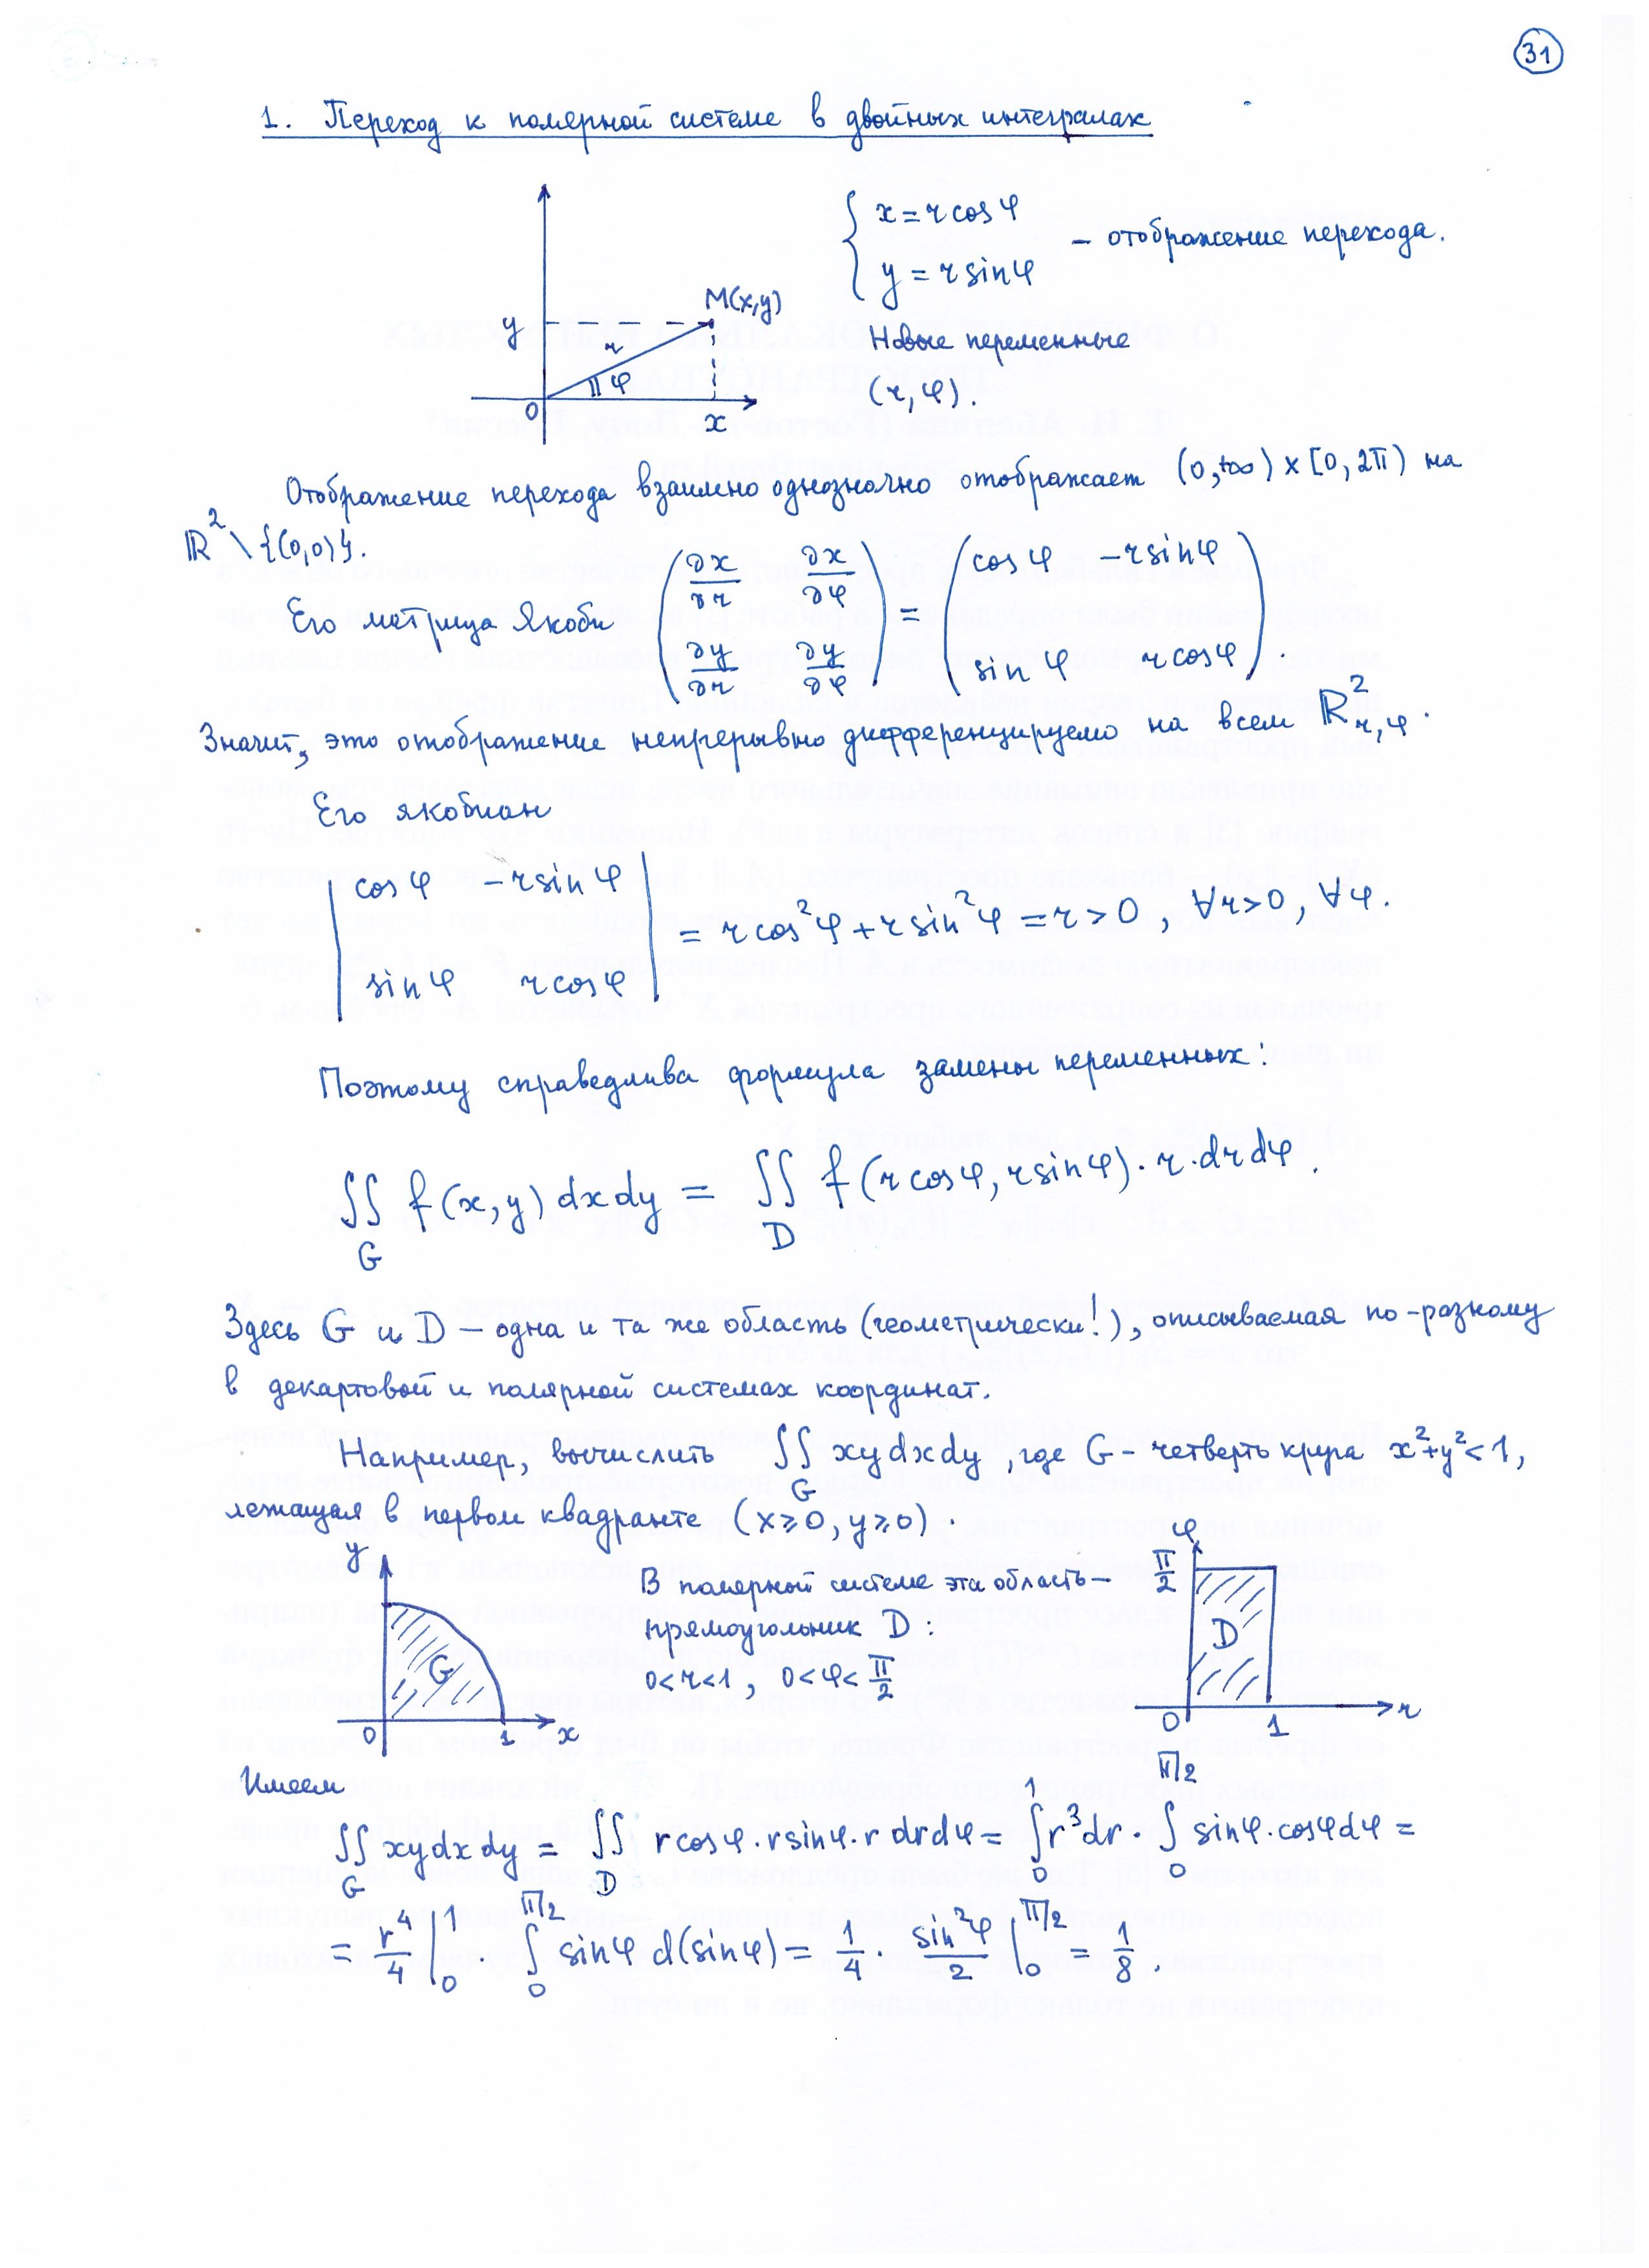 31
1. Переход к полярной системе в двойных интегралах
{ x = r cos φ
y = r sin φ
– отображение перехода.
M(x,y)
y
r
φ
0
x
Новые переменные
(r, φ).
Отображение перехода взаимно однозначно отображает (0,+∞) × [0, 2π) на
ℝ² \ {(0,0)}.
Его матрица Якоби (∂x/∂r ∂x/∂φ ; ∂y/∂r ∂y/∂φ) = (cos φ −r sin φ ; sin φ r cos φ).
Значит, это отображение непрерывно дифференцируемо на всем ℝ²r,φ.
Его якобиан
| cos φ −r sin φ ; sin φ r cos φ | = r cos²φ + r sin²φ = r > 0, ∀r>0, ∀φ.
Поэтому справедлива формула замены переменных:
∬G f(x,y) dxdy = ∬D f(r cos φ, r sin φ)·r·drdφ.
Здесь G и D – одна и та же область (геометрически!), описываемая по-разному
в декартовой и полярной системах координат.
Например, вычислить ∬G xy dxdy, где G - четверть круга x²+y²<1,
лежащая в первом квадранте (x≥0, y≥0).
y
G
0
1
x
В полярной системе эта область –
прямоугольник D:
0<r<1, 0<φ<π/2
φ
π/2
D
0
1
r
Имеем
∬G xy dxdy = ∬D r cos φ · r sin φ · r drdφ = ∫₀¹ r³dr · ∫₀^{π/2} sin φ · cos φ dφ =
= r⁴/4 |₀¹ · ∫₀^{π/2} sin φ d(sin φ) = 1/4 · sin²φ/2 |₀^{π/2} = 1/8.